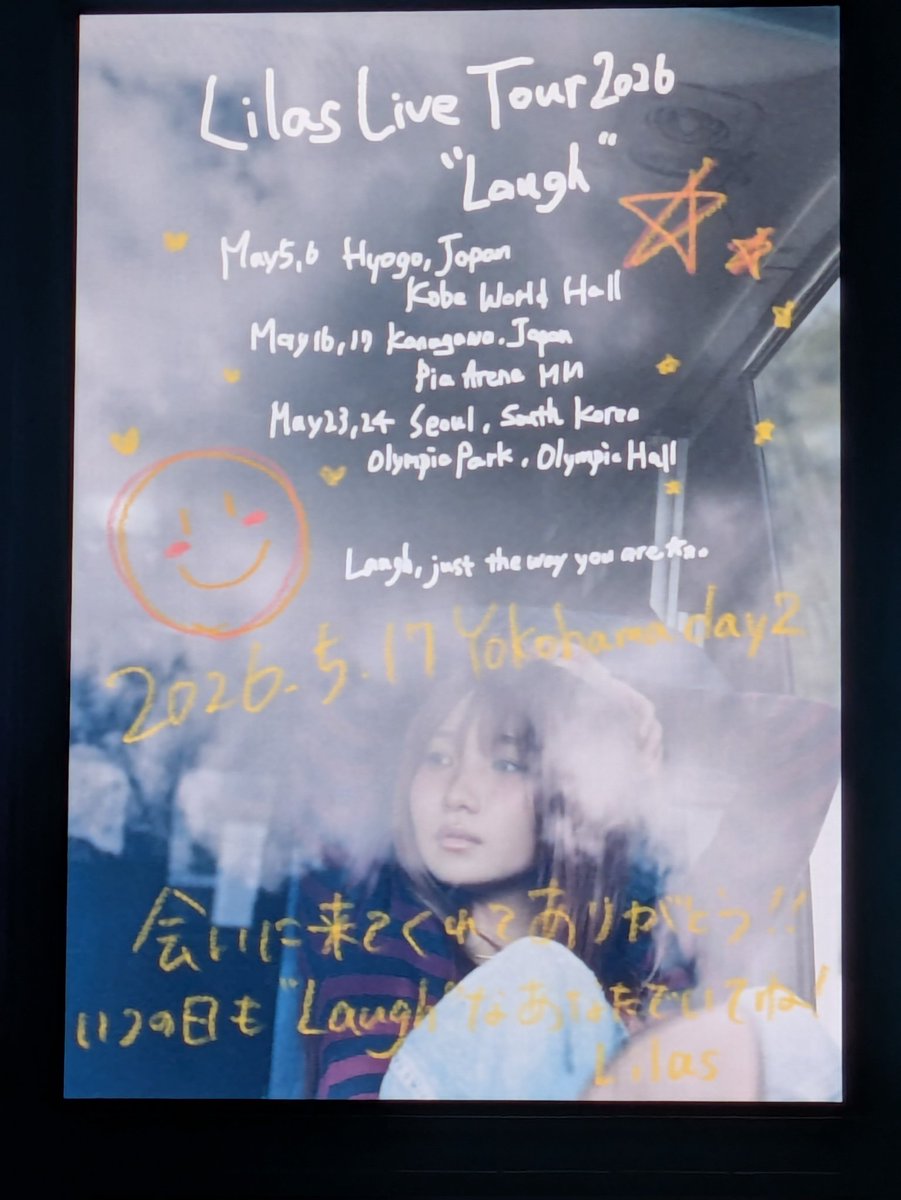 Lilas Live Tour 2026
"Laugh"
May 5, 6 Hyogo, Japan
Kobe World Hall
May 16, 17 Kanagawa, Japan
Pia Arena MM
May 23, 24 Seoul, South Korea
Olympic Park, Olympic Hall
Laugh, just the way you are
2026.5.17 Yokohama day2
会いに来てくれてありがとう!!
いつの日も"Laugh"なあなたでいてね!
Lilas